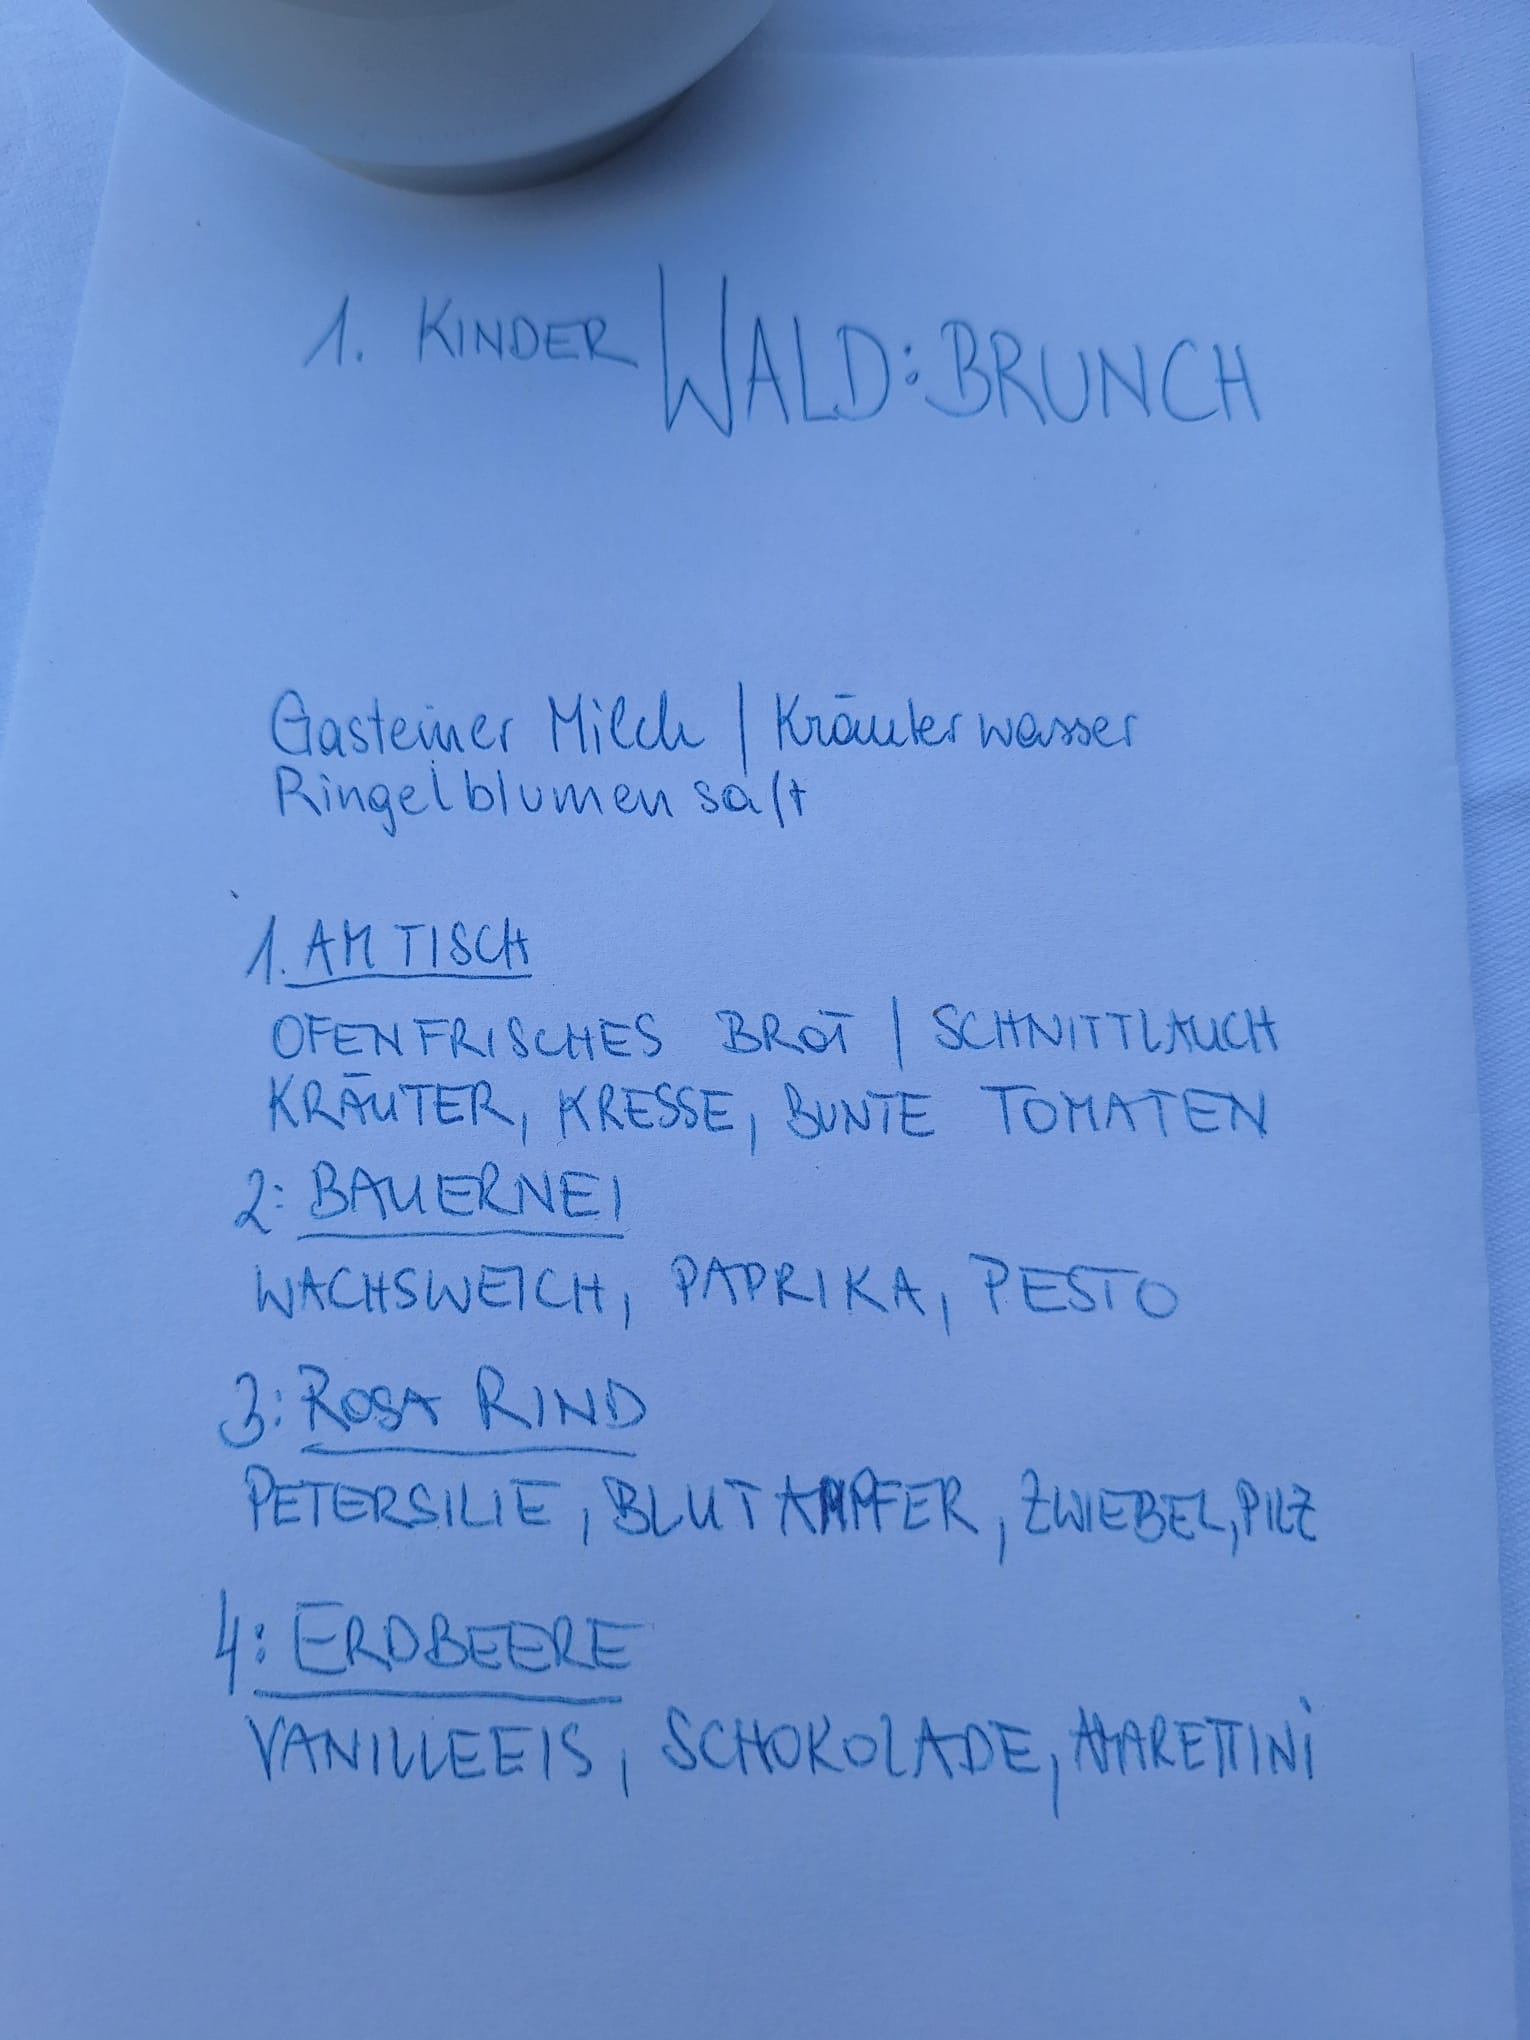 1. KINDER WALD:BRUNCH
Gasteiner Milch | Kräuterwasser
Ringelblumensaft
1. AM TISCH
OFENFRISCHES BROT | SCHNITTLAUCH
KRÄUTER, KRESSE, BUNTE TOMATEN
2: BAUERNEI
WACHSWEICH, PAPRIKA, PESTO
3: ROSA RIND
PETERSILIE, BLUTAMPFER, ZWIEBEL, PILZ
4: ERDBEERE
VANILLEEIS, SCHOKOLADE, AMARETTINI